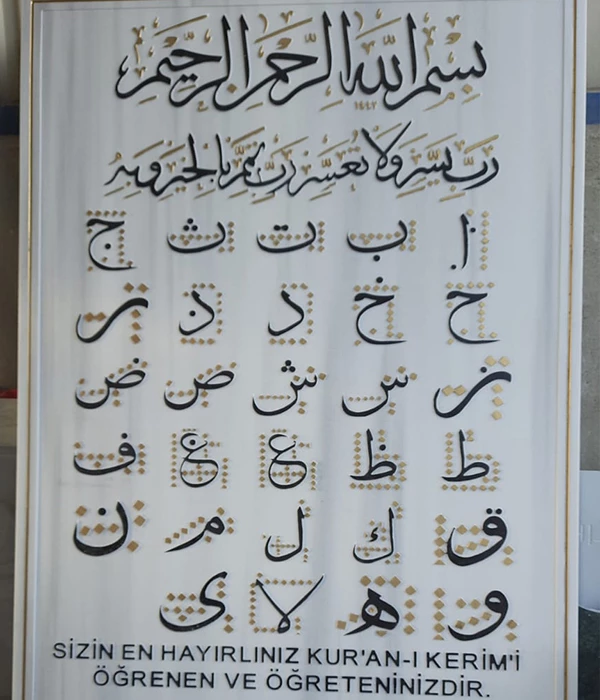 بسم الله الرحمن الرحيم
١٤٤٢
رب يسر ولا تعسر رب تمم بالخير وبه
ا ب ت ث ج
ح خ د ذ ر
ز س ش ص ض
ط ظ ع غ ف
ق ك ل م ن
و ه لا ى
SİZİN EN HAYIRLINIZ KUR'AN-I KERİM'İ
ÖĞRENEN VE ÖĞRETENİNİZDİR.